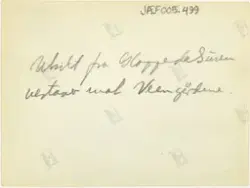 JÆF005-499
Utsikt fra Gloppedalsuren
vestover mot Veen gårdene.